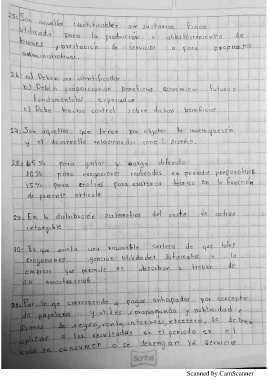 25: Son aquellos identificables sin sustancia física
utilizada para la producción o abastecimiento de
bienes prestación de servicios o para propositos
administrativos.
26: a) Deben ser identificados
b) Deben proporcionar beneficios economicos futuros
fundamentalmente esperados
c) Debe tenerse control sobre dichos beneficios
27: Son aquellos que tienen por objeto la investigación
y el desarrollo relacionados con diseño.
28: 5% para gastos y cargo diferido
10% para erogaciones realizadas en periodos preoperativos
15% para regalías para asistencia técnica en la fracción
de presente artículo
29: Es la distribución sistematica del costo de activo
intangible
30: Es que exista una razonable certeza de que tales
erogaciones generan utilidades suficientes a la
empresa que permite se absorban a traves de
su amortización.
31: Por lo que corresponde a pagos anticipados por concepto
de papeleria y utiles, propaganda y publicidad,
primas de seguro, renta, intereses, etcetera, se deben
aplicar a los resultados en el periodo en el
cual se consumen o se devengan el servicio
Scribe
Scanned by CamScanner